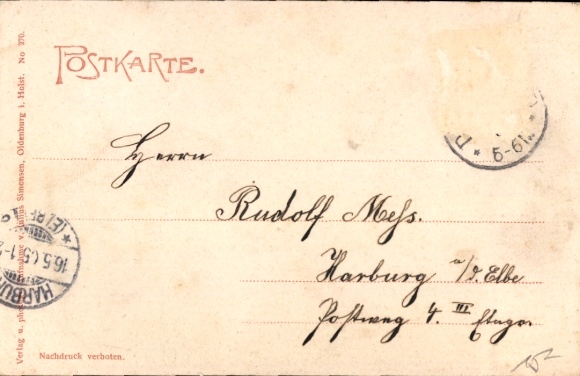 POSTKARTE.
Herrn
Rudolf Mess.
Harburg a/d. Elbe
Postweg 4. III Etage.
Nachdruck verboten.
Verlag u. phot. Aufnahme v. Julius Simonsen, Oldenburg i. Holst. No 270.
5-6N.
HARBURG
(ELBE)
16.5.05.1-2